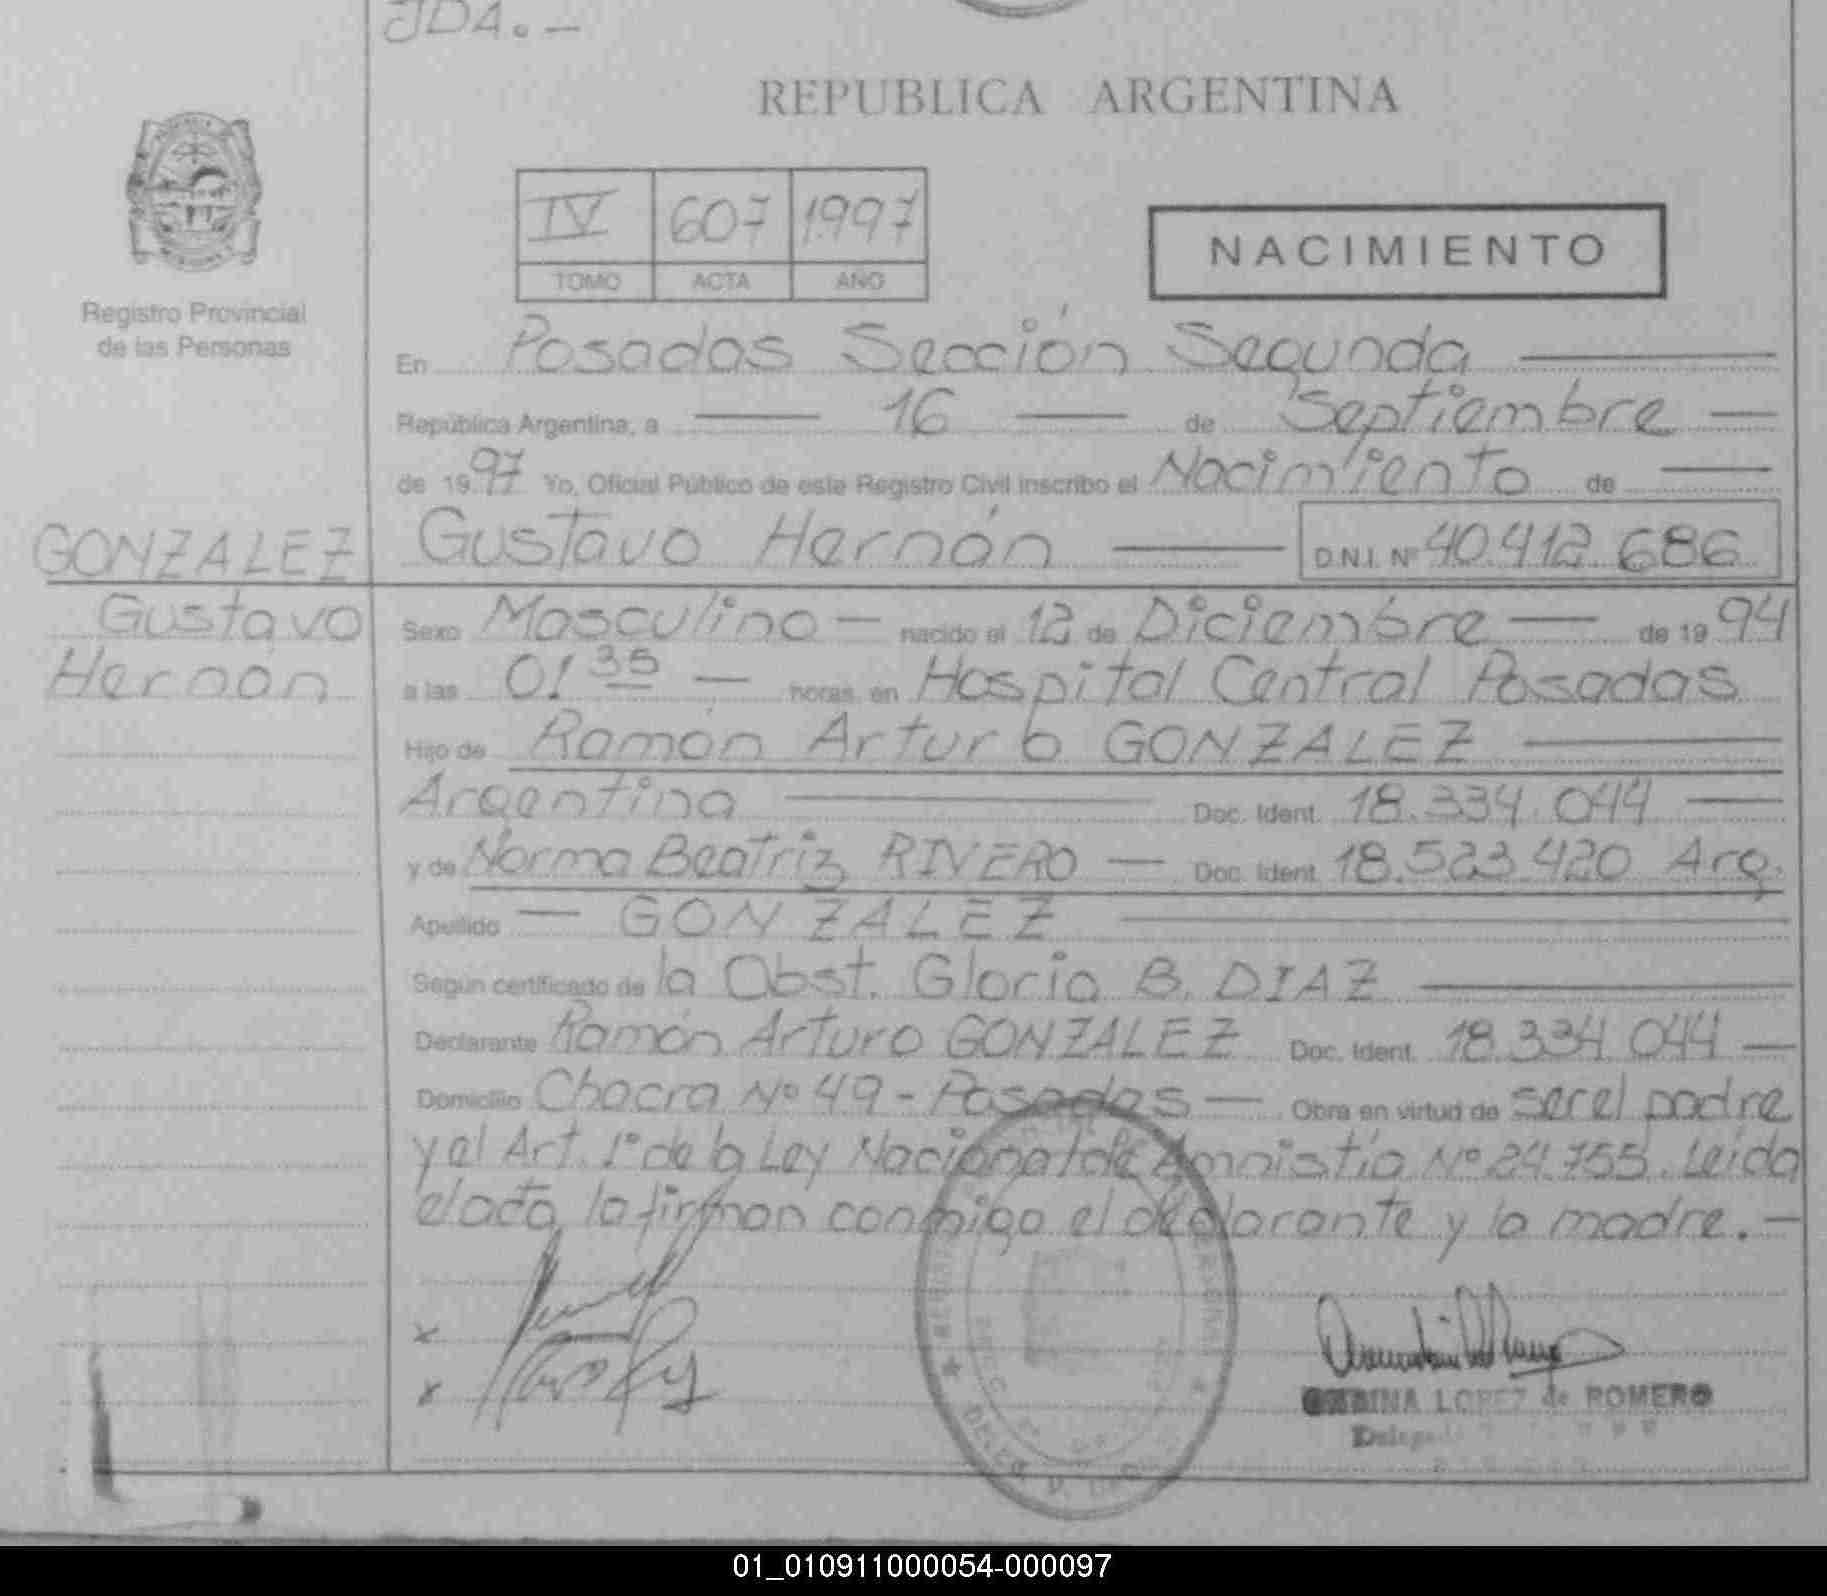 JDA. -
REPUBLICA ARGENTINA
IV 607 1997
TOMO ACTA AÑO
NACIMIENTO
Registro Provincial
de las Personas
En Posadas Sección Segunda
República Argentina, a 16 de Septiembre
de 1997 Yo, Oficial Público de este Registro Civil inscribo el Nacimiento de
GONZALEZ
Gustavo
Hernán
Gustavo Hernán D.N.I. Nº 40.412.686
Sexo Masculino - nacido el 12 de Diciembre de 1994
a las 01 35 - horas, en Hospital Central Posadas
Hijo de Ramón Arturo GONZALEZ
Argentina Doc. Ident. 18.334.044
y de Norma Beatriz RIVERO - Doc. Ident. 18.523.420 Arg.
Apellido - GONZALEZ
Según certificado de la Obst. Gloria B. DIAZ
Declarante Ramón Arturo GONZALEZ Doc. Ident. 18.334.044 -
Domicilio Chacra Nº 49 - Posadas - Obra en virtud de ser el padre
y el Art. 1º de la Ley Nacional de Amnistía Nº 24.755. Leída
el acta, la firman conmigo el declarante y la madre. -
x
x
LOPEZ de ROMERO
01_010911000054-000097